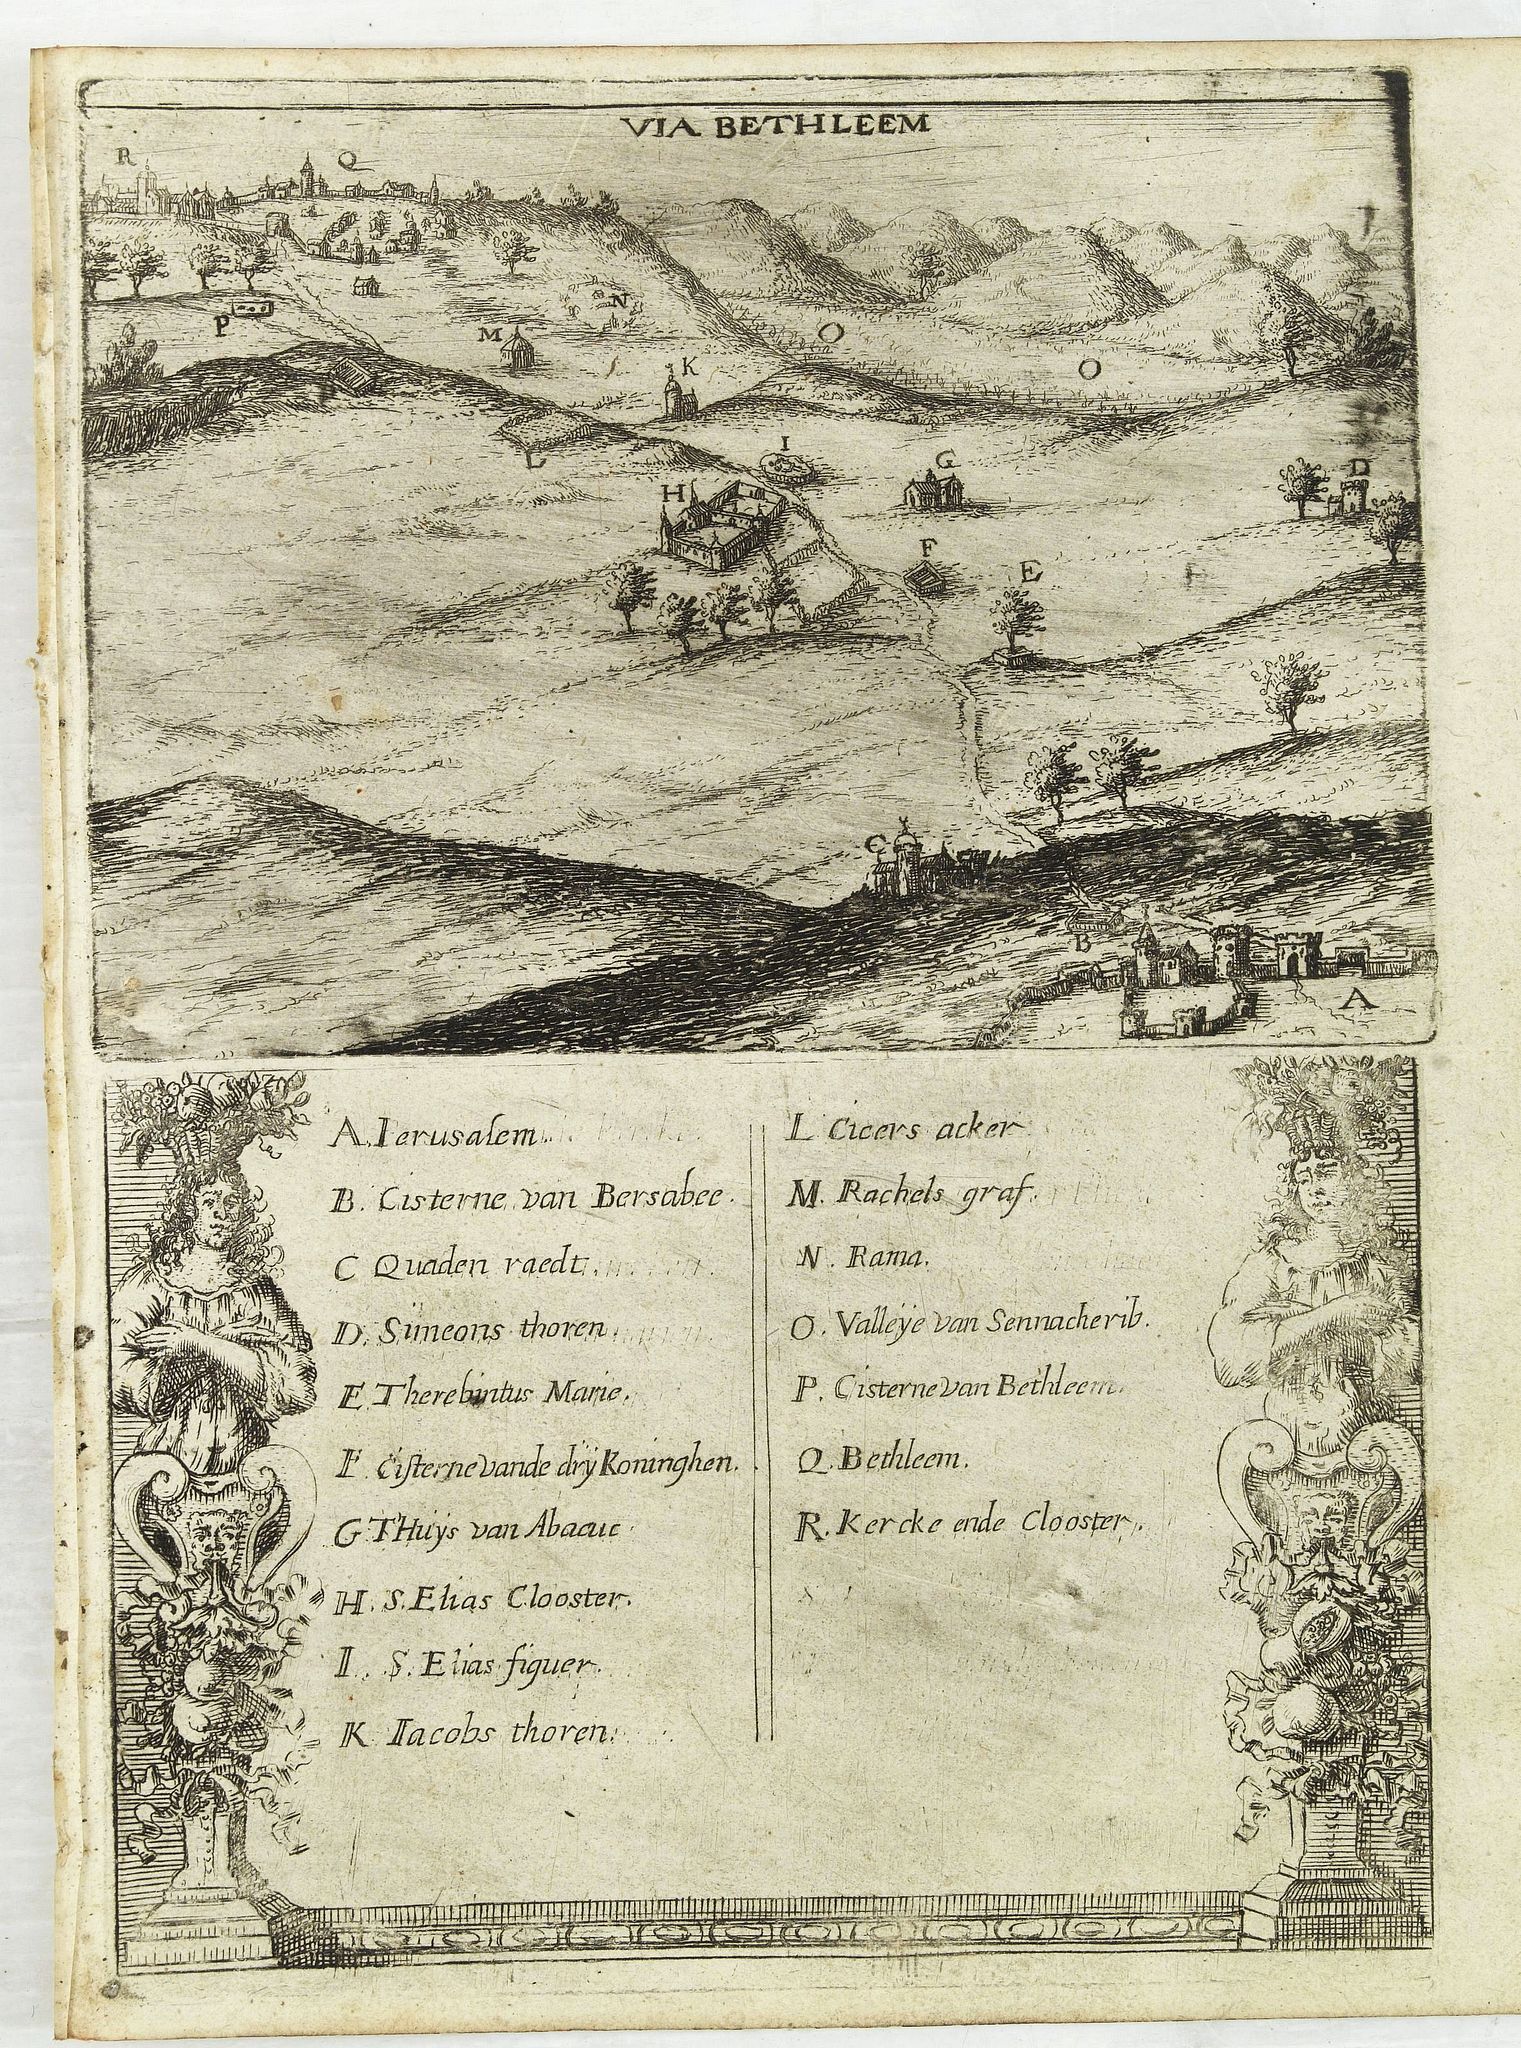 VIA BETHLEEM
R
Q
P
N
M
O
O
K
L
I
H
G
D
F
E
C
B
A
A. Ierusalem
B. Cisterne van Bersabee.
C Quaden raedt
D. Simeons thoren
E Therebintus Marie.
F. Cisterne vande drÿ Koninghen.
G THuÿs van Abacuc
H. S. Elias Clooster.
I. S. Elias figuer.
K Iacobs thoren.
L Cicers acker
M. Rachels graf.
N. Rama.
O. Valleÿe van Sennacherib.
P. Cisterne van Bethleem.
Q. Bethleem.
R. Kercke ende Clooster.